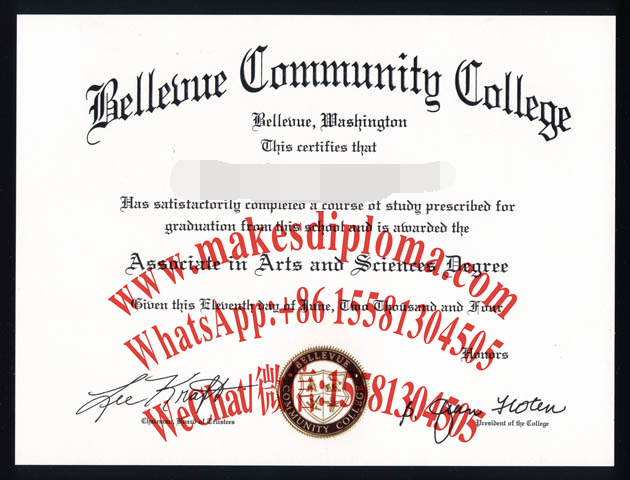 Bellevue Community College
Bellevue, Washington
This certifies that
Has satisfactorily completed a course of study prescribed for
graduation from this school and is awarded the
www.makesdiploma.com
Associate in Arts and Sciences Degree
Given this Eleventh day of June, Two Thousand and Four
WhatsApp:+86 15581304505
Honors
BELLEVUE
COMMUNITY COLLEGE
WeChat/微 81304505
Lee Kraft
Chairman, Board of Trustees
President of the College